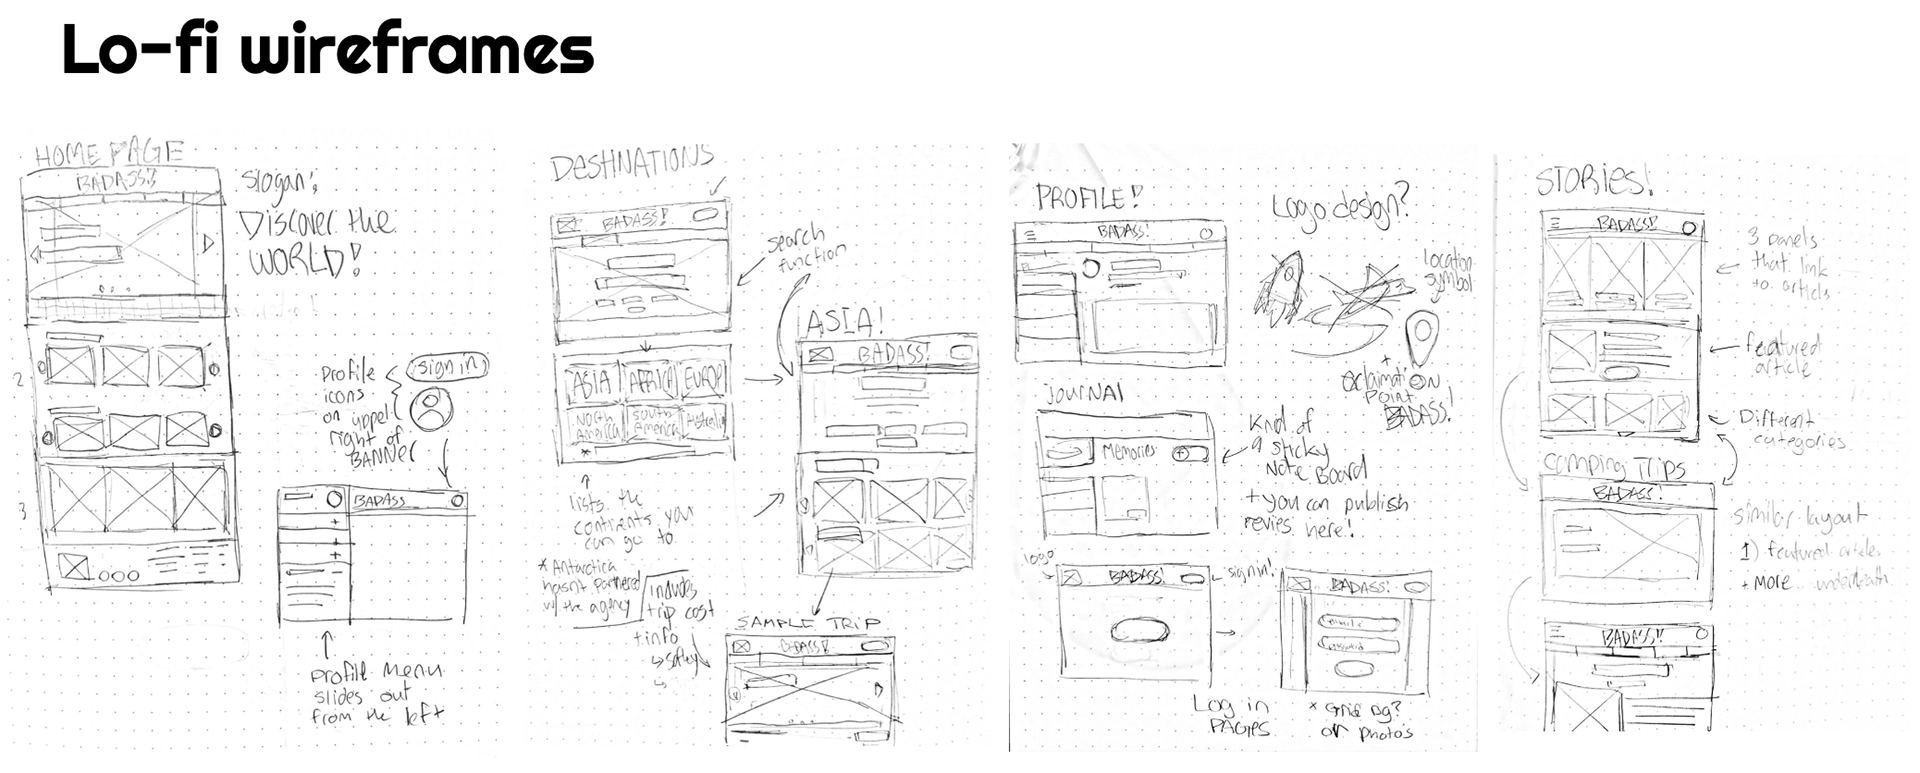 Lo-fi wireframes
HOME PAGE
BADASS!!
Slogan:
DISCOVER the
WORLD!
2
3
profile
icons
on upper
right of
BANNER
sign in
BADASS
profile menu
slides out
from the left
DESTINATIONS
BADASS!!
search
function
ASIA
AFRICA
EUROP
NORTH
AMERICA
SOUTH
AMERICA
Australia
*
lists the
continents you
can go to
* Antarctica
hasn't partnered
w/ the agency
includes
trip cost
+info
ASIA!
BADASS!
SAMPLE TRIP
BADASS!!
PROFILE!
BADASS!
Logo design?
Location
symbol
+
exclaimation
point
BADASS!
Journal
Memories
+
Kind of
a sticky
Note Board
+ you can publish
revies here!
logo
BADASS!
sign in!
BADASS!
Log in
PAGES
* Grid Bg?
or photo's
STORIES!
BADASS!!
3 panels
that link
to articls
featured
article
Different
categories
Camping Trips
BADASS!
similar layout
1) featured articles
+ more underneath
BADASS!!